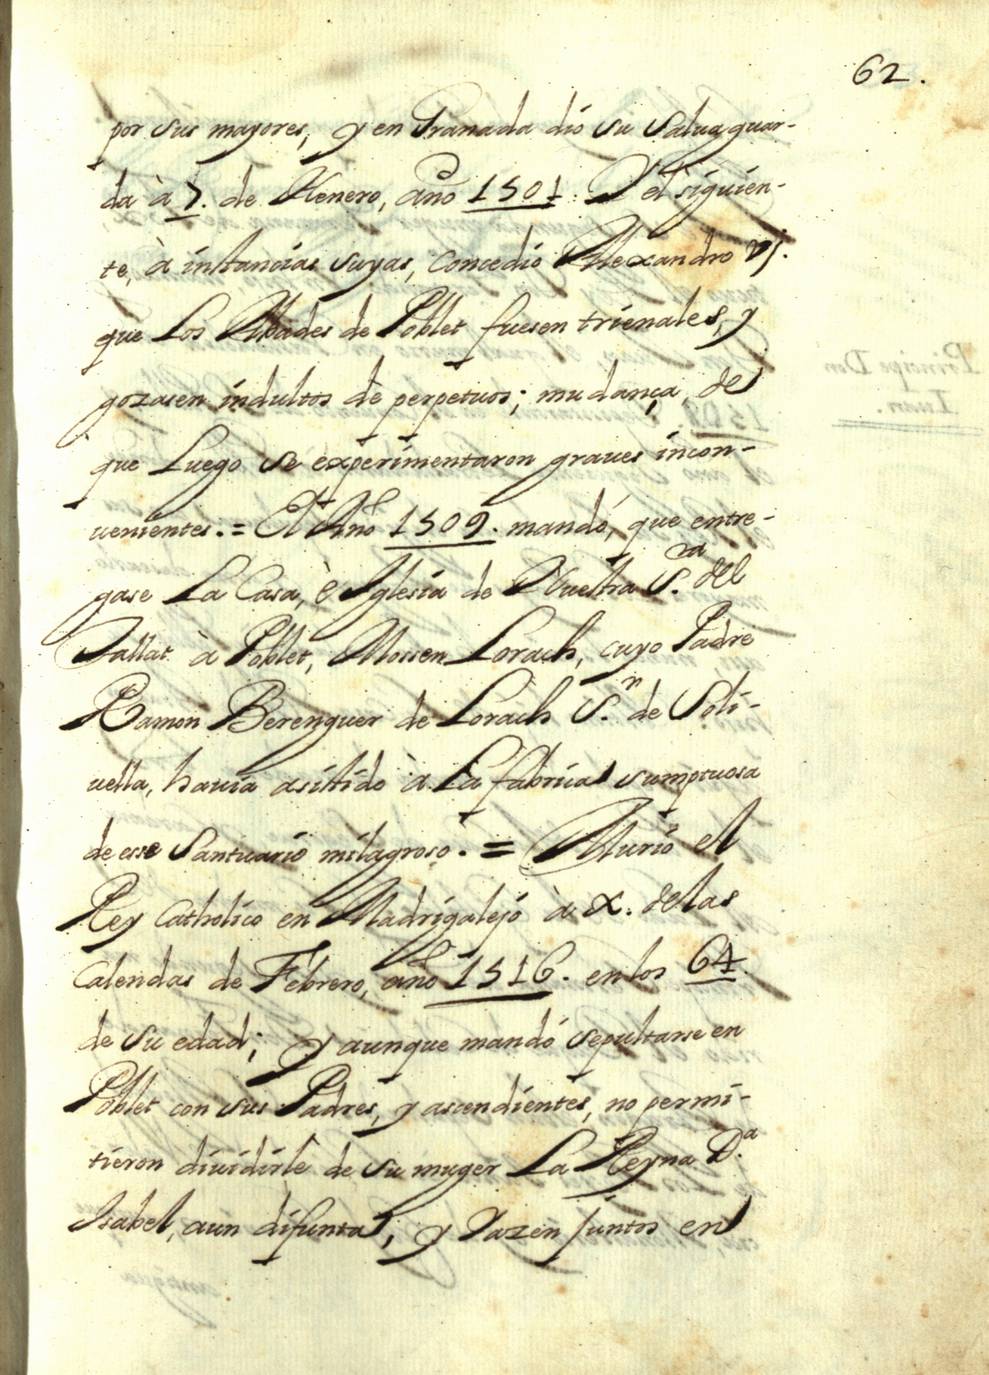 62.
por sus mayores, y en Granada dio su Saluaguar-
da à 7. de Henero, año 1501. Y el siguien-
te, à instancias suyas, concedio Alexandro VJ.
que Los Abades de Poblet fuesen trienales, y
gozasen indultos de perpetuos; mudança, de
que Luego se experimentaron graues incon-
uenientes. = El Año 1509. mandó, que entre-
gase La Casa, è Iglesia de Nuestra S.ra del
Tallat à Poblet, Mossen Lorach, cuyo Padre
Ramon Berenguer de Lorach S.n de Soli-
uella, hauia asistido à La fabrica sumptuosa
de esse Santuario milagroso. = Murió el
Rey Catholico en Madrigalejo à X. delas
Calendas de Febrero, año 1516. en los 64.
de su edad; y aunque mandó sepultarse en
Poblet con sus Padres, y ascendientes, no permi-
tieron diuidirle de su muger La Reyna D.a
Isabel, aun difunta; y Yazen juntos en